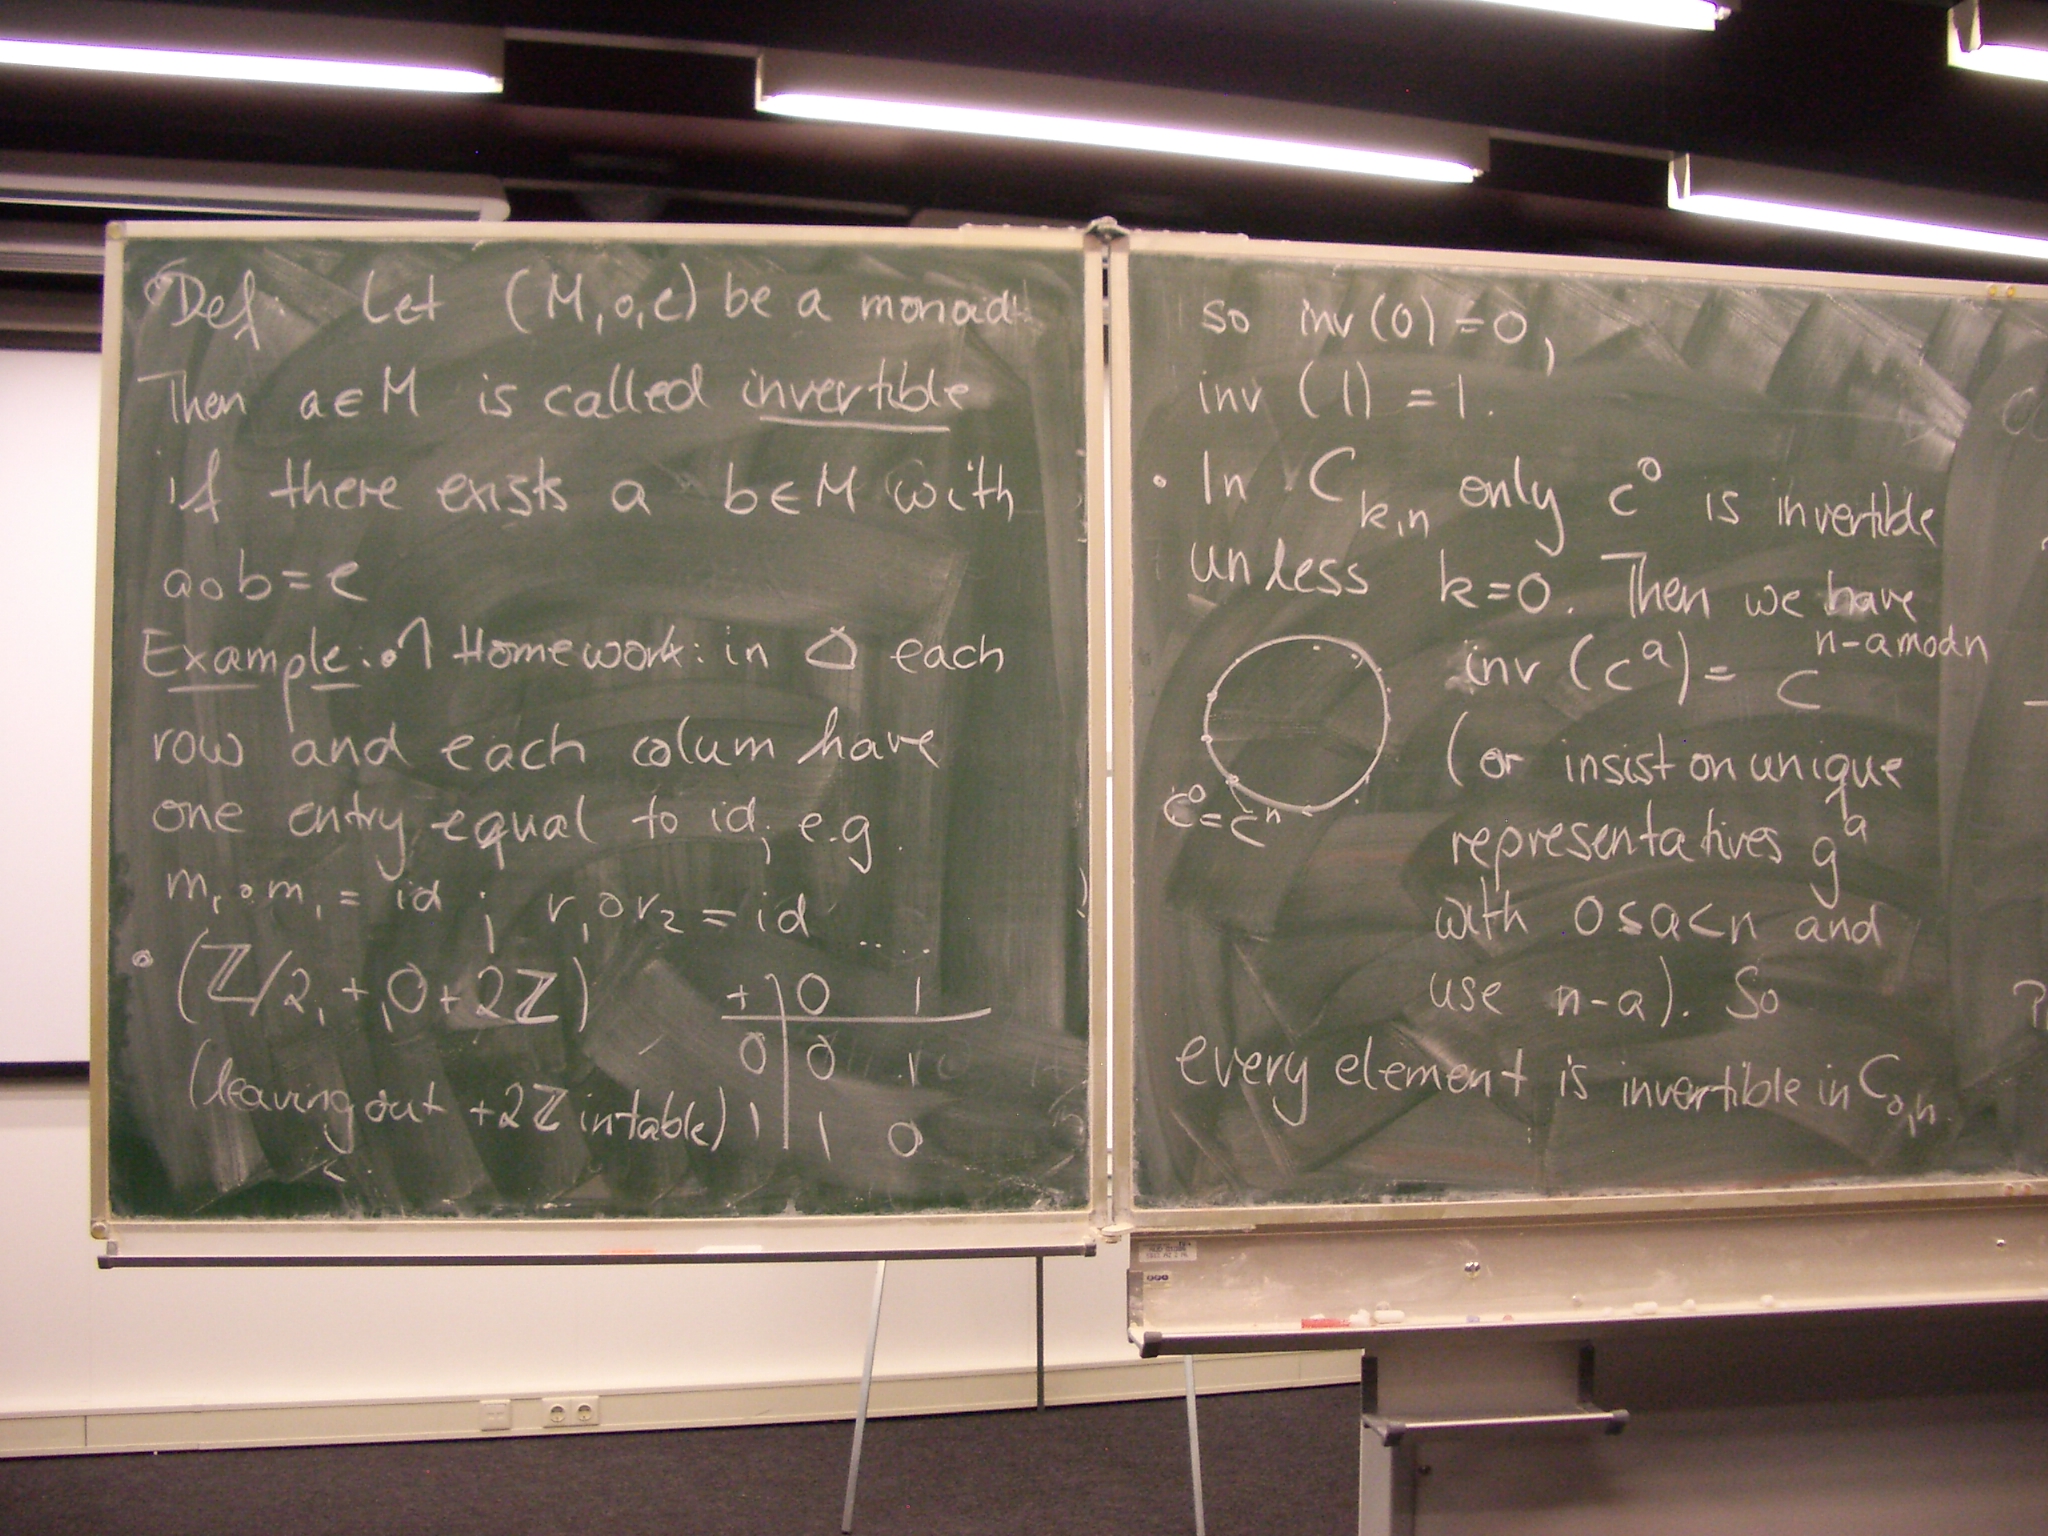 Def. Let (M,∘,e) be a monoid.
Then a∈M is called invertible
if there exists a b∈M with
a∘b=e
Example: • Homework: in △ each
row and each colum have
one entry equal to id; e.g.
m₁∘m₁=id; r₁∘r₂=id ....
• (ℤ/2,+,0+2ℤ)
(leaving out +2ℤ in table)
+ | 0 1
0 | 0 1
1 | 1 0
so inv(0)=0,
inv (1)=1.
• In C_{k,n} only c⁰ is invertible
unless k=0. Then we have
inv(cᵃ)= c^{n-a mod n}
c⁰=cⁿ
(or insist on unique
representatives gᵃ
with 0≤a<n and
use n-a). So
every element is invertible in C_{0,n}.